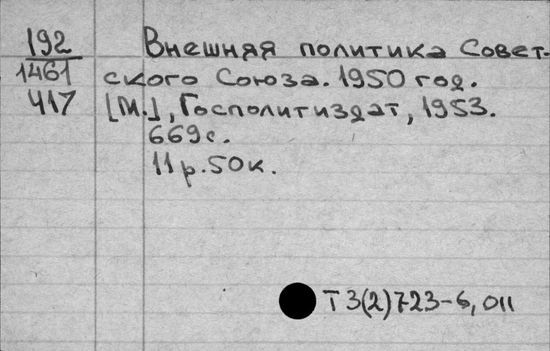 192
1461
417
Внешняя политика Совет-
ского Союза. 1950 год.
[М.], Госполитиздат, 1953.
669с.
11р. 50к.
Т3(2)723-6, 011